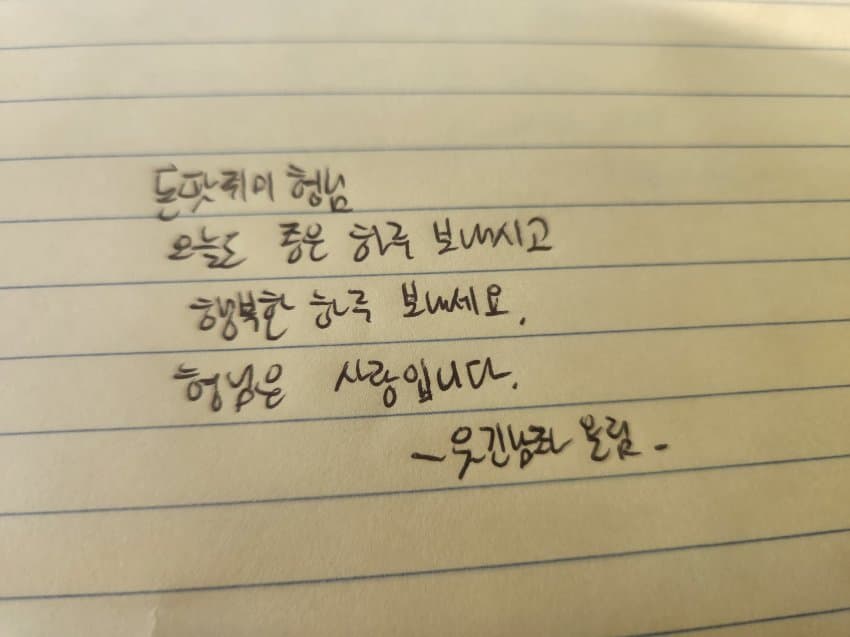 돈팟뤼미 형님
오늘도 좋은 하루 보내시고
행복한 하루 보내세요.
형님은 사랑입니다.
- 웃긴남좌 올림 -